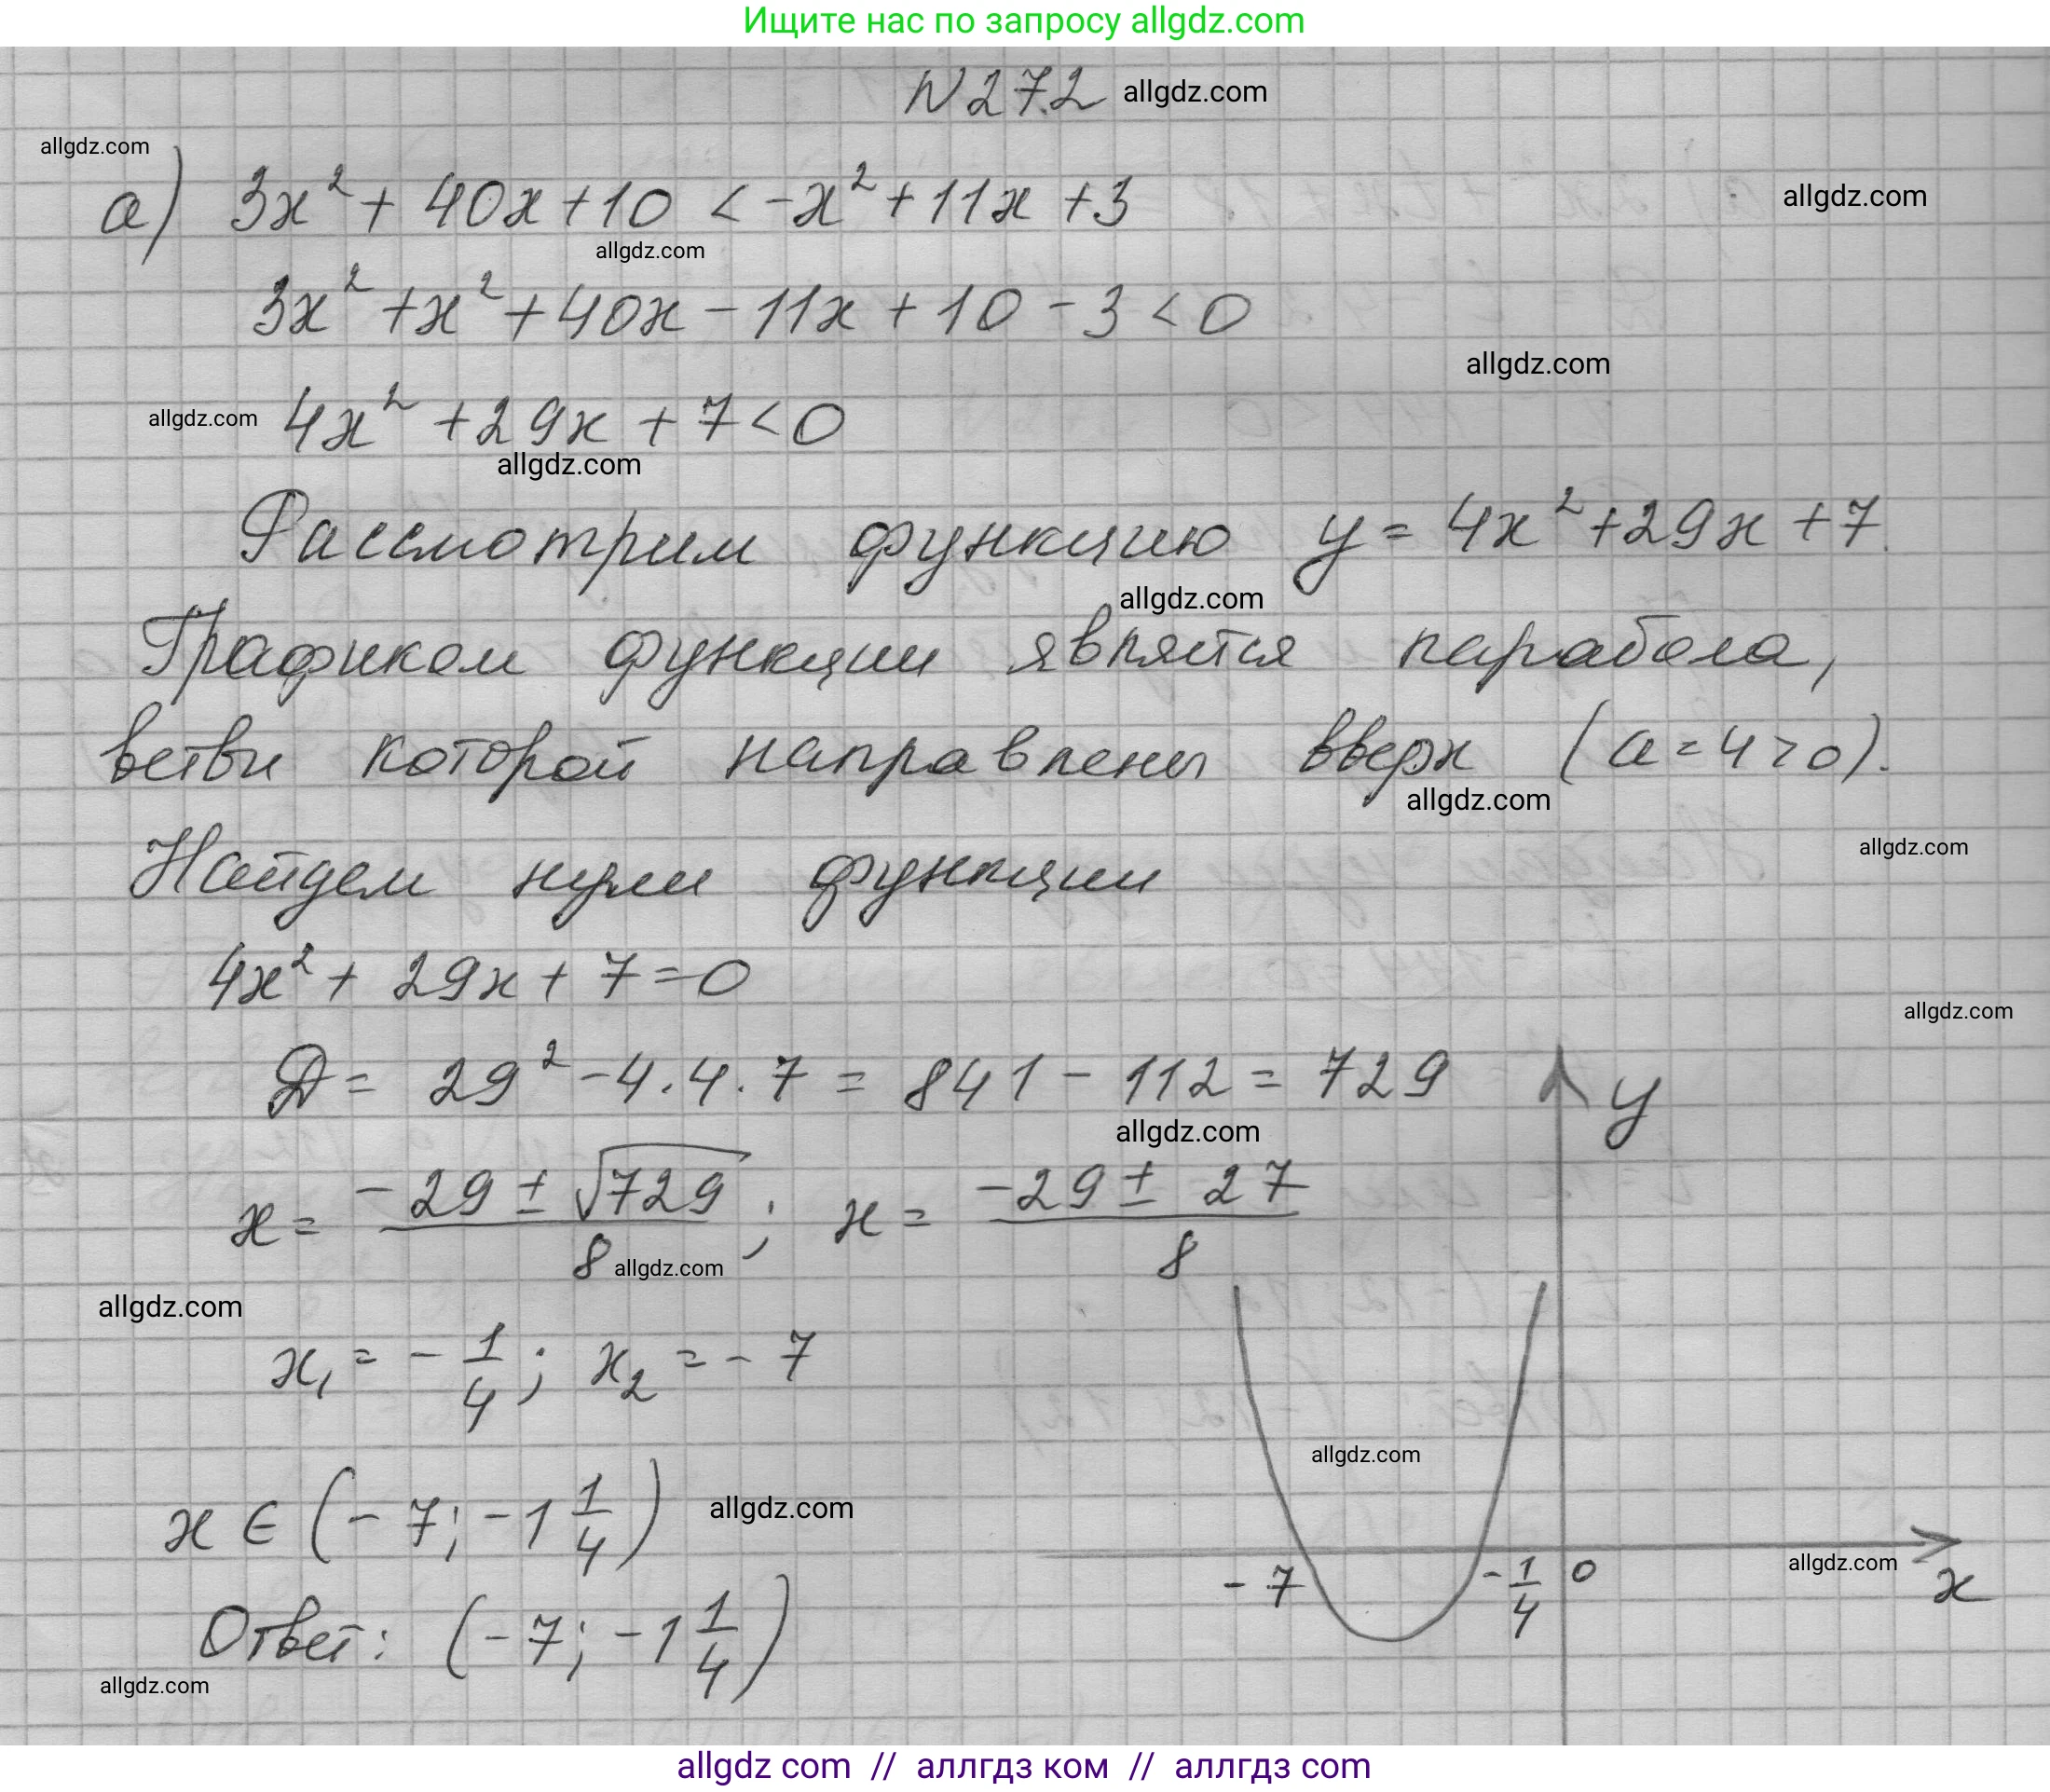 Ищите нас по запросу allgdz.com
N 272 allgdz.com
allgdz.com
а) 3x² + 40x + 10 < -x² + 11x + 3 allgdz.com
allgdz.com
3x² + x² + 40x - 11x + 10 - 3 < 0
allgdz.com
allgdz.com 4x² + 29x + 7 < 0
allgdz.com
Рассмотрим функцию y = 4x² + 29x + 7.
allgdz.com
Графиком функции является парабола,
ветви которой направлены вверх (a = 4 > 0).
allgdz.com
Найдем нули функции allgdz.com
4x² + 29x + 7 = 0
allgdz.com
Д = 29² - 4 · 4 · 7 = 841 - 112 = 729
y
allgdz.com
x = (-29 ± √729)/8; x = (-29 ± 27)/8
allgdz.com
allgdz.com
x₁ = -1/4; x₂ = -7
allgdz.com
x ∈ (-7; -1 1/4) allgdz.com
-7 -1/4 0 allgdz.com x
Ответ: (-7; -1 1/4)
allgdz.com
allgdz com // аллгдз ком // аллгдз com